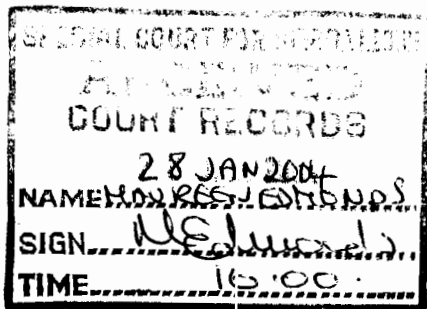 SPECIAL COURT FOR SIERRA LEONE
COURT RECORDS
28 JAN 2004
NAME MAUREEN EDMONDS
SIGN MEdmonds
TIME 16.00.